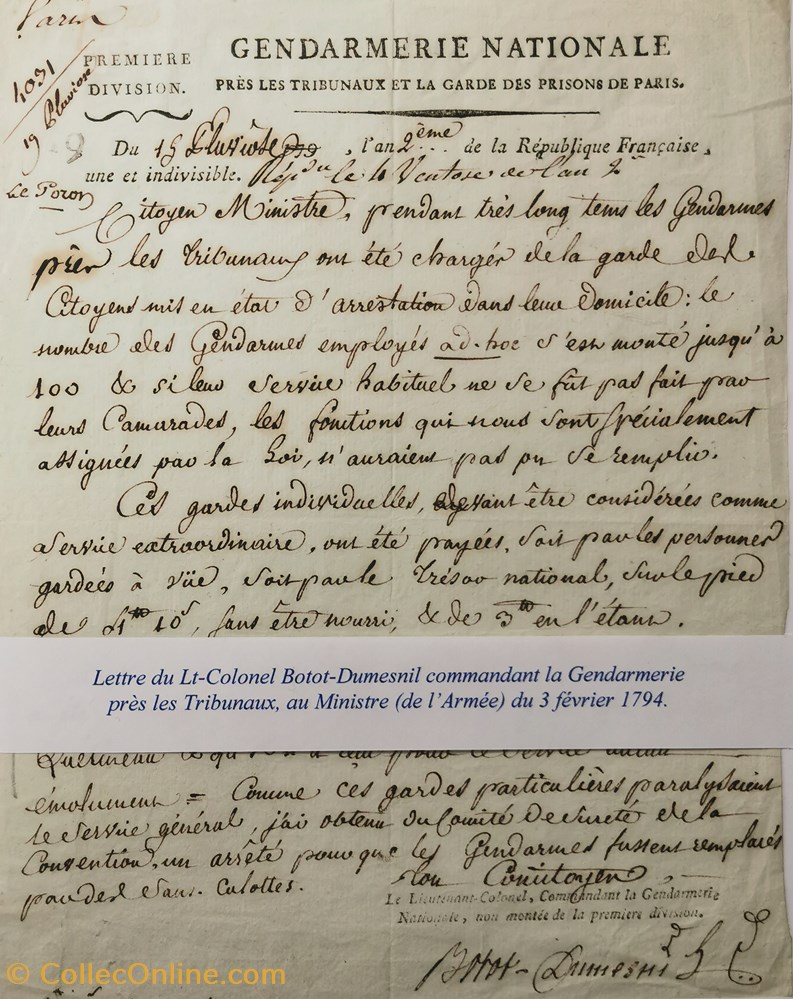 Paris
4031
19 Pluviose
PREMIERE
DIVISION.
GENDARMERIE NATIONALE
PRÈS LES TRIBUNAUX ET LA GARDE DES PRISONS DE PARIS.
Du 15 Pluviôse , l'an 2ème de la République Française,
une et indivisible. Rép.du le 4 Ventose de l'an 2
Le Poron
Citoyen Ministre, pendant très long tems les Gendarmes
près les Tribunaux ont été chargés de la garde des
Citoyens mis en état d'arrestation dans leur domicile : le
nombre des Gendarmes employés ad-hoc s'est monté jusqu'à
100 & si leur service habituel ne se fût pas fait par
leurs Camarades, les fonctions qui nous sont spécialement
assignées par la Loi, n'auraient pas pu se remplir.
Ces gardes individuelles, devant être considérées comme
service extraordinaire, ont été payées, soit par les personnes
gardées à vüe, soit par le Trésor national, sur le pied
de 10s, sans être nourri, & de 3tt en l'étant.
Lettre du Lt-Colonel Botot-Dumesnil commandant la Gendarmerie
près les Tribunaux, au Ministre (de l'Armée) du 3 février 1794.
émolument = Comme ces gardes particulières paralysaient
le service général, j'ai obtenu du Comité de sureté de la
Convention, un arrêté pour que les Gendarmes fussent remplacés
par des Sans-Culottes.
ton Concitoyen
Le Lieutenant-Colonel, Commandant la Gendarmerie
Nationale, non montée de la premiere division.
Botot-Dumesnil
© CollecOnline.com